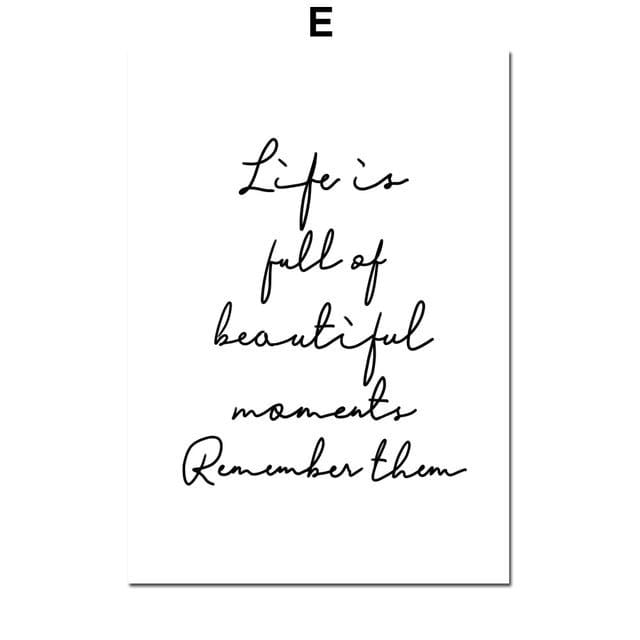 E
Life is
full of
beautiful
moments
Remember them